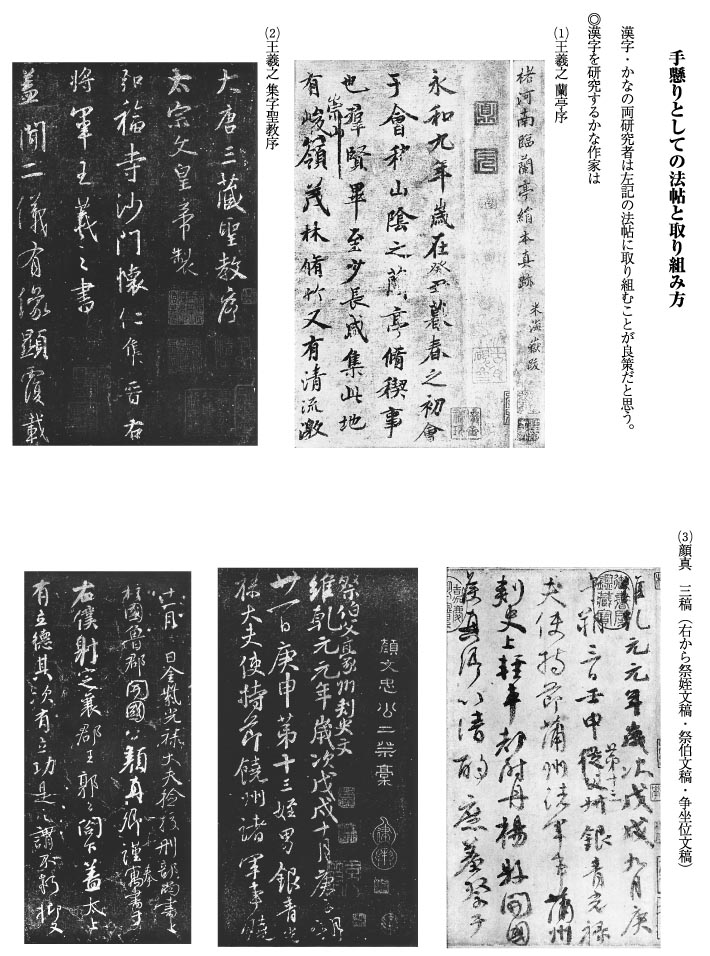 手懸りとしての法帖と取り組み方
漢字・かなの両研究者は左記の法帖に取り組むことが良策だと思う。
◎漢字を研究するかな作家は
⑴王羲之 蘭亭序
褚河南臨蘭亭絹本真跡
永和九年歲在癸丑暮春之初會
于會稽山陰之蘭亭脩稧事
也羣賢畢至少長咸集此地
有崇山峻領茂林脩竹又有清流激
⑵王羲之 集字聖教序
大唐三藏聖教序
太宗文皇帝製
弘福寺沙門懷仁集晉右
將軍王羲之書
蓋聞二儀有像顯覆載
⑶顔真 三稿（右から祭姪文稿・祭伯文稿・争坐位文稿）
維乾元元年歲次戊戌九月庚
午朔三日壬申第十三從父銀青光祿
夫使持節蒲州諸軍事蒲州
刺史上輕車都尉丹楊縣開國
侯真卿以清酌庶羞祭于
顏文忠公三祭稾
祭伯父豪州刺史文
維乾元元年歲次戊戌十月庚子朔
廿一日庚申第十三姪男銀青光
祿大夫使持節饒州諸軍事饒
十一月日金紫光祿大夫檢校刑部尚書上
柱國魯郡開國公顏真卿謹奉書于
右僕射定襄郡王郭公閤下蓋太上
有立德其次有立功是之謂不朽抑又